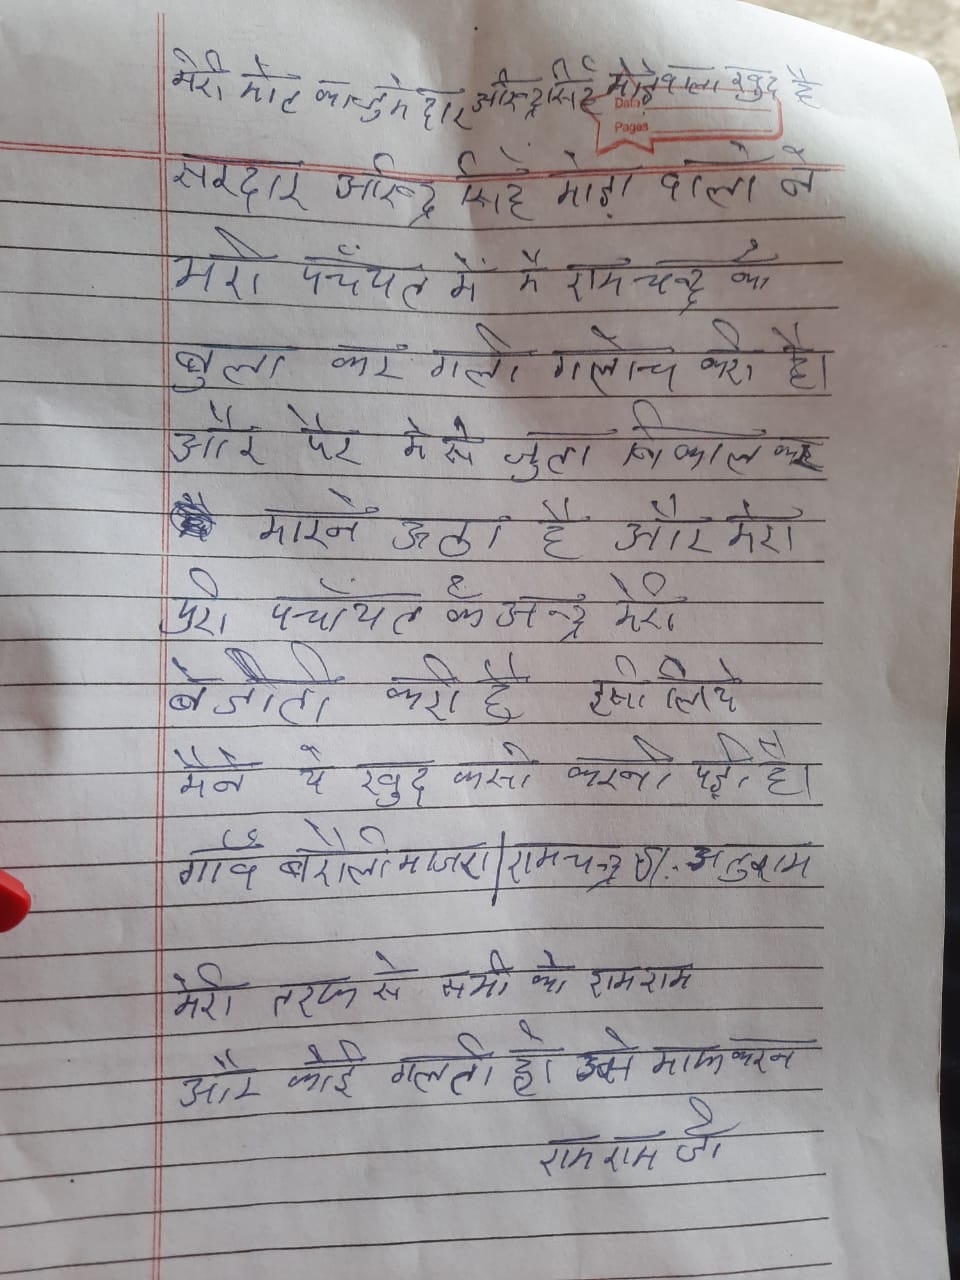 मेरी मोत का जुमेदार ओरेन्द्र सिंह मोड़ी वाला खुद है
Date
Pages
सरदार ओरेन्द्र सिंह मोड़ी वाले ने
मेरी पंचायत में मै रामचन्द्र को
बुला कर गाली गलोच करी है।
और पैर मे से जुता निकाल कर
मारने ऊठा है और मेरा
पुरी पंचायत के अन्द्र मेरी
बेजोती करी है इसी लिये
मैने ये खुद कसी करनी पड़ी है।
गाँव बैरोली माजरा / रामचन्द्र S/.
मेरी तरफ से सभी को रामराम
और कोई गलती हो उसे माफ करना
राम राम जी